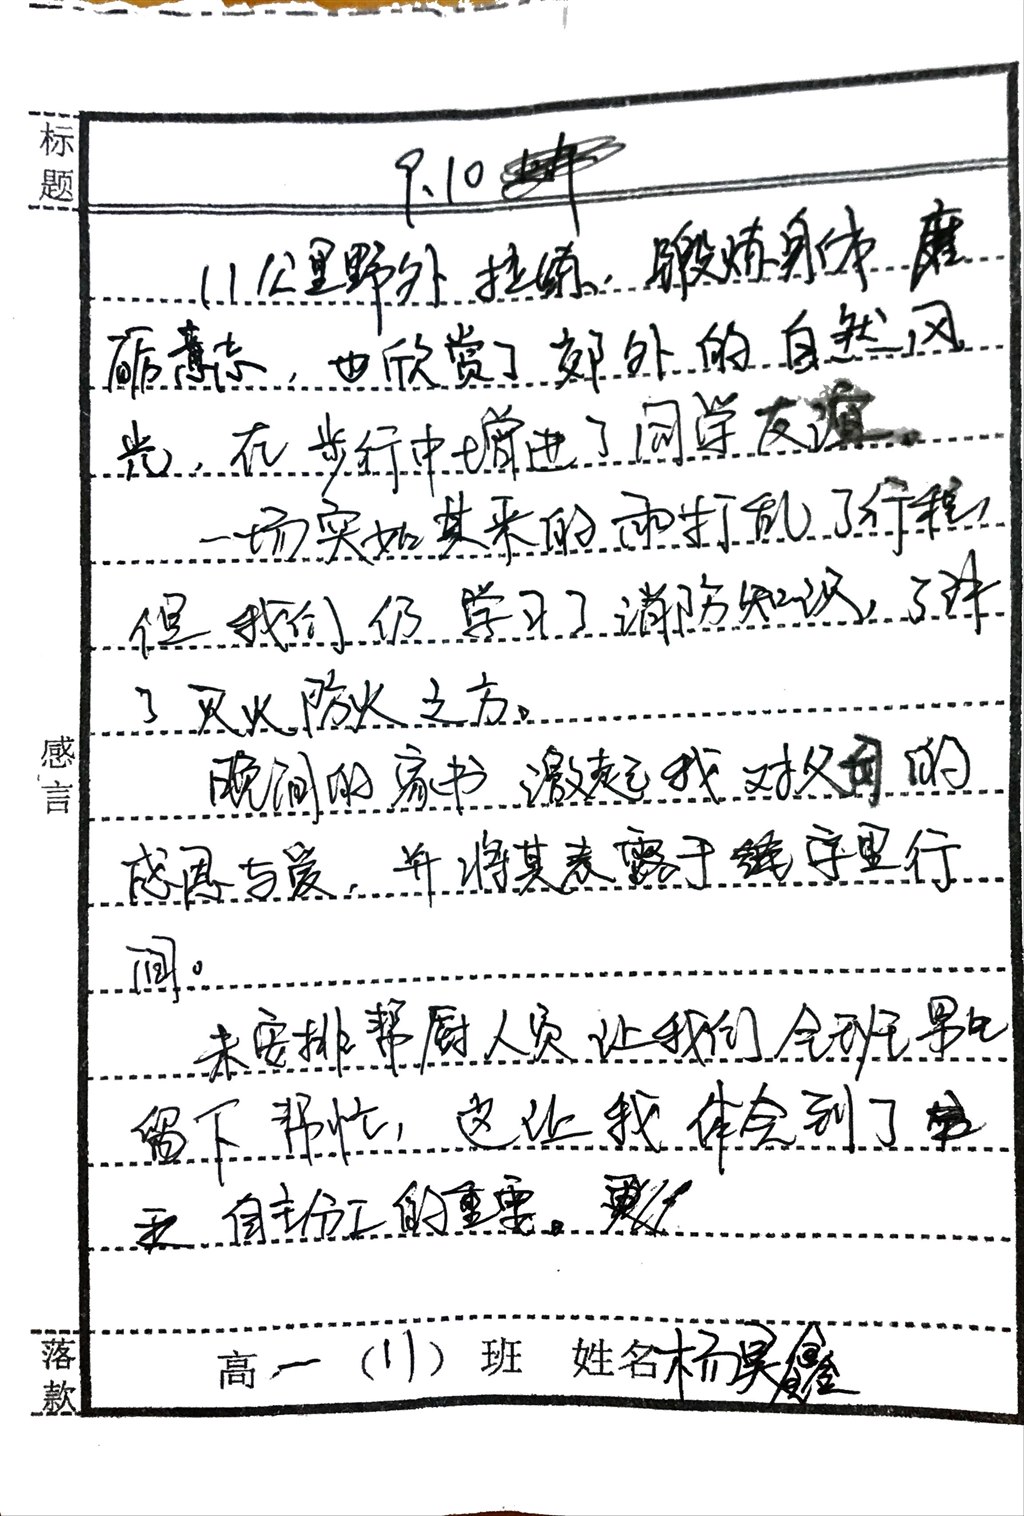 标题
9.10
11公里野外拉练,锻炼身体磨
砺意志,也欣赏了郊外的自然风
光,在步行中增进了同学友谊。
一场突如其来的雨打乱了行程,
但我们仍学习了消防知识,了解
了灭火防火之方。
感言
晚间的家书激起我对父母的
感恩与爱,并将其表露于字里行
间。
未安排帮厨人员让我们全班男生
留下帮忙,这让我体会到了
自主分工的重要。
落款
高一(11)班 姓名杨昊鑫